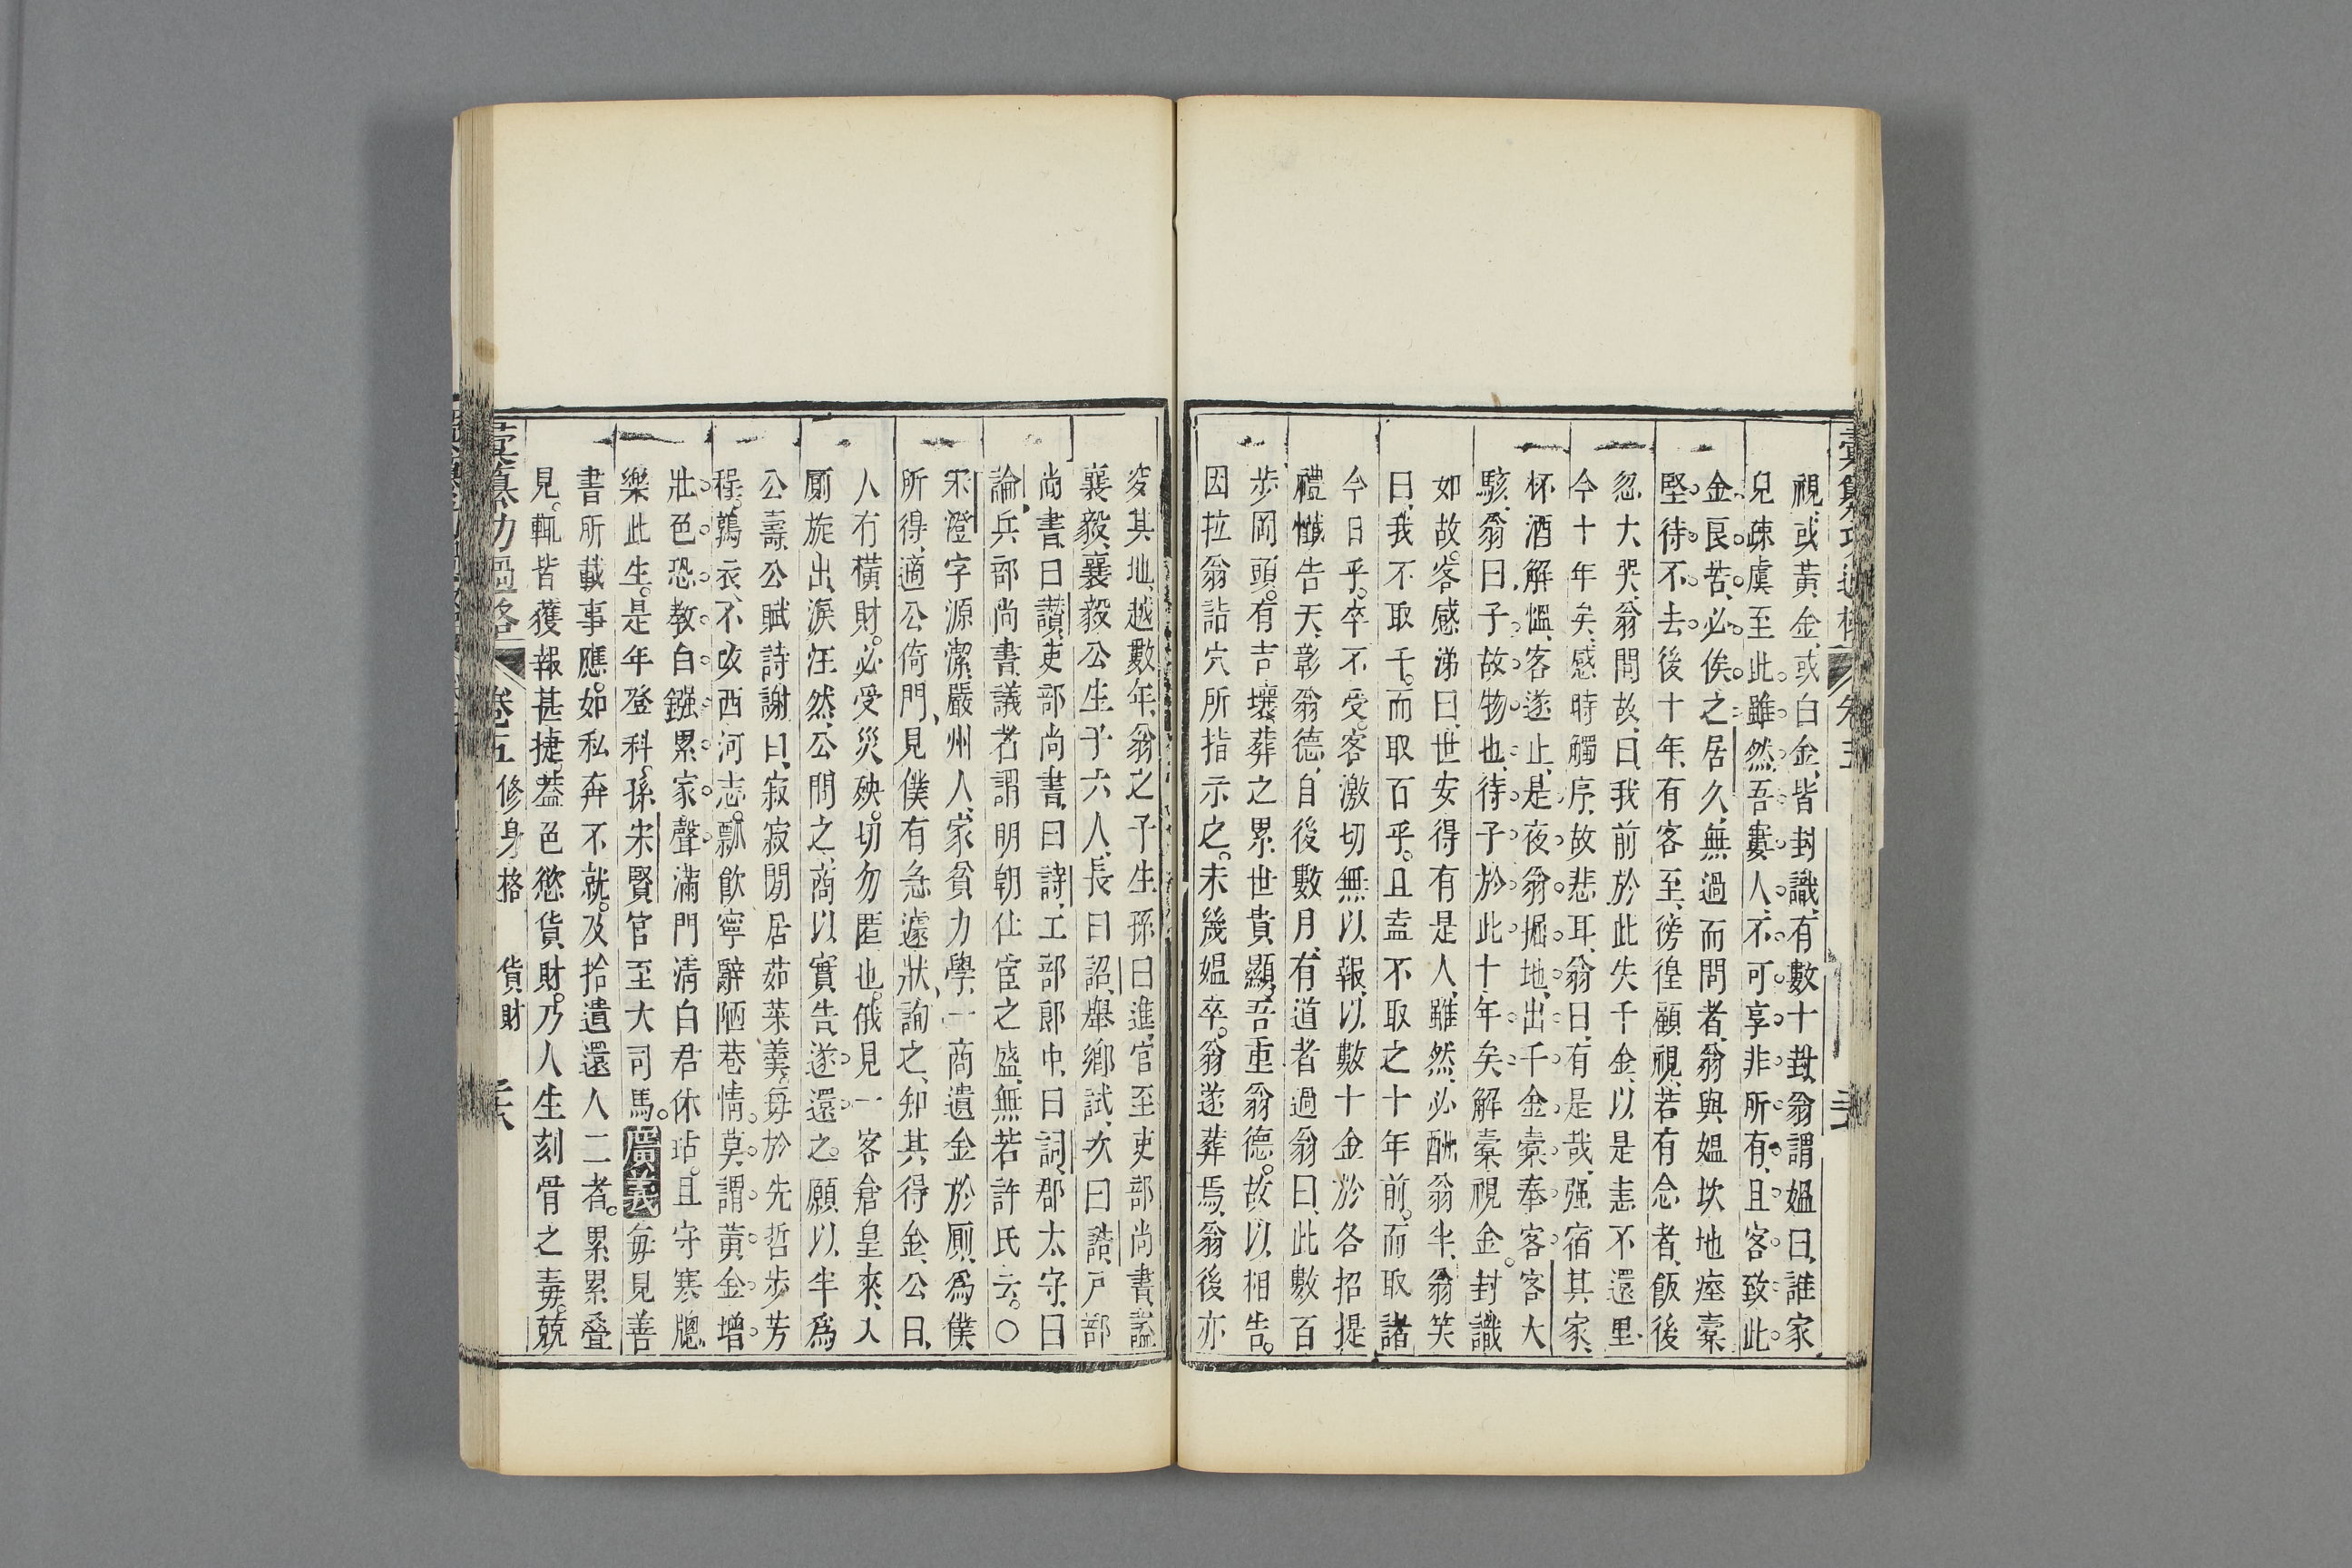 視、或黃金、或白金、皆封識、有數十封、翁謂媼曰、誰家
兒疎虞至此。雖然、吾寠人、不可享非所有、且客致此
金良苦、必俟之、居久、無過而問者、翁與媼坎地瘞橐、
堅待不去、後十年、有客至、徬徨顧視、若有念者、飯後
忽大哭、翁問故、曰、我前於此失千金、以是恚不還里、
今十年矣、感時觸序、故悲耳、翁曰、有是哉、强宿其家、
杯酒解慍、客遂止、是夜翁掘地、出千金橐奉客、客大
駭、翁曰、子故物也、待子於此十年矣、解橐視金。封識
如故。客感涕曰、世安得有是人、雖然、必酬翁半、翁笑
曰、我不取千。而取百乎。且盍不取之十年前。而取諸
今日乎。卒不受。客激切無以報、以數十金於各招提
禮懺告天、彰翁德、自後數月、有道者過翁曰、此數百
步岡頭。有吉壤、葬之累世貴顯、吾重翁德。故以相告。
因拉翁詣穴所指示之。未幾媼卒。翁遂葬焉、翁後亦
窆其地、越數年、翁之子生孫曰進、官至吏部尚書、謚
襄毅、襄毅公生子六人、長曰詔、舉鄉試、次曰誥、戶部
尚書、曰讚、吏部尚書、曰詩、工部郎中、曰詞、郡太守、曰
論、兵部尚書、議者謂明朝仕宦之盛、無若許氏云。○
宋澄字源潔、嚴州人、家貧力學、一商遺金於厠、爲僕
所得、適公倚門、見僕有急遽狀、詢之、知其得金、公曰、
人有橫財。必受災殃。切勿匿也。俄見一客倉皇來、入
厠旋出、淚汪然、公問之、商以實告、遂還之。願以半爲
公壽、公賦詩謝曰、寂寂閒居茹菜羹。每於先哲步芳
程。鶉衣、不改西河志。瓢飮寧辭陋巷情。莫謂黃金增
壯色。恐敎白鏹累家聲。滿門淸白君休玷。且守寒牕
樂此生。是年登科、孫宋賢官至大司馬。廣義每見善
書所載事應。如私奔不就。及拾遺還人二者。累累疊
見。輒皆獲報甚捷。蓋色慾貨財。乃人生刻骨之毒。兢
彙纂功過格 卷五 修身格 貨財 三六